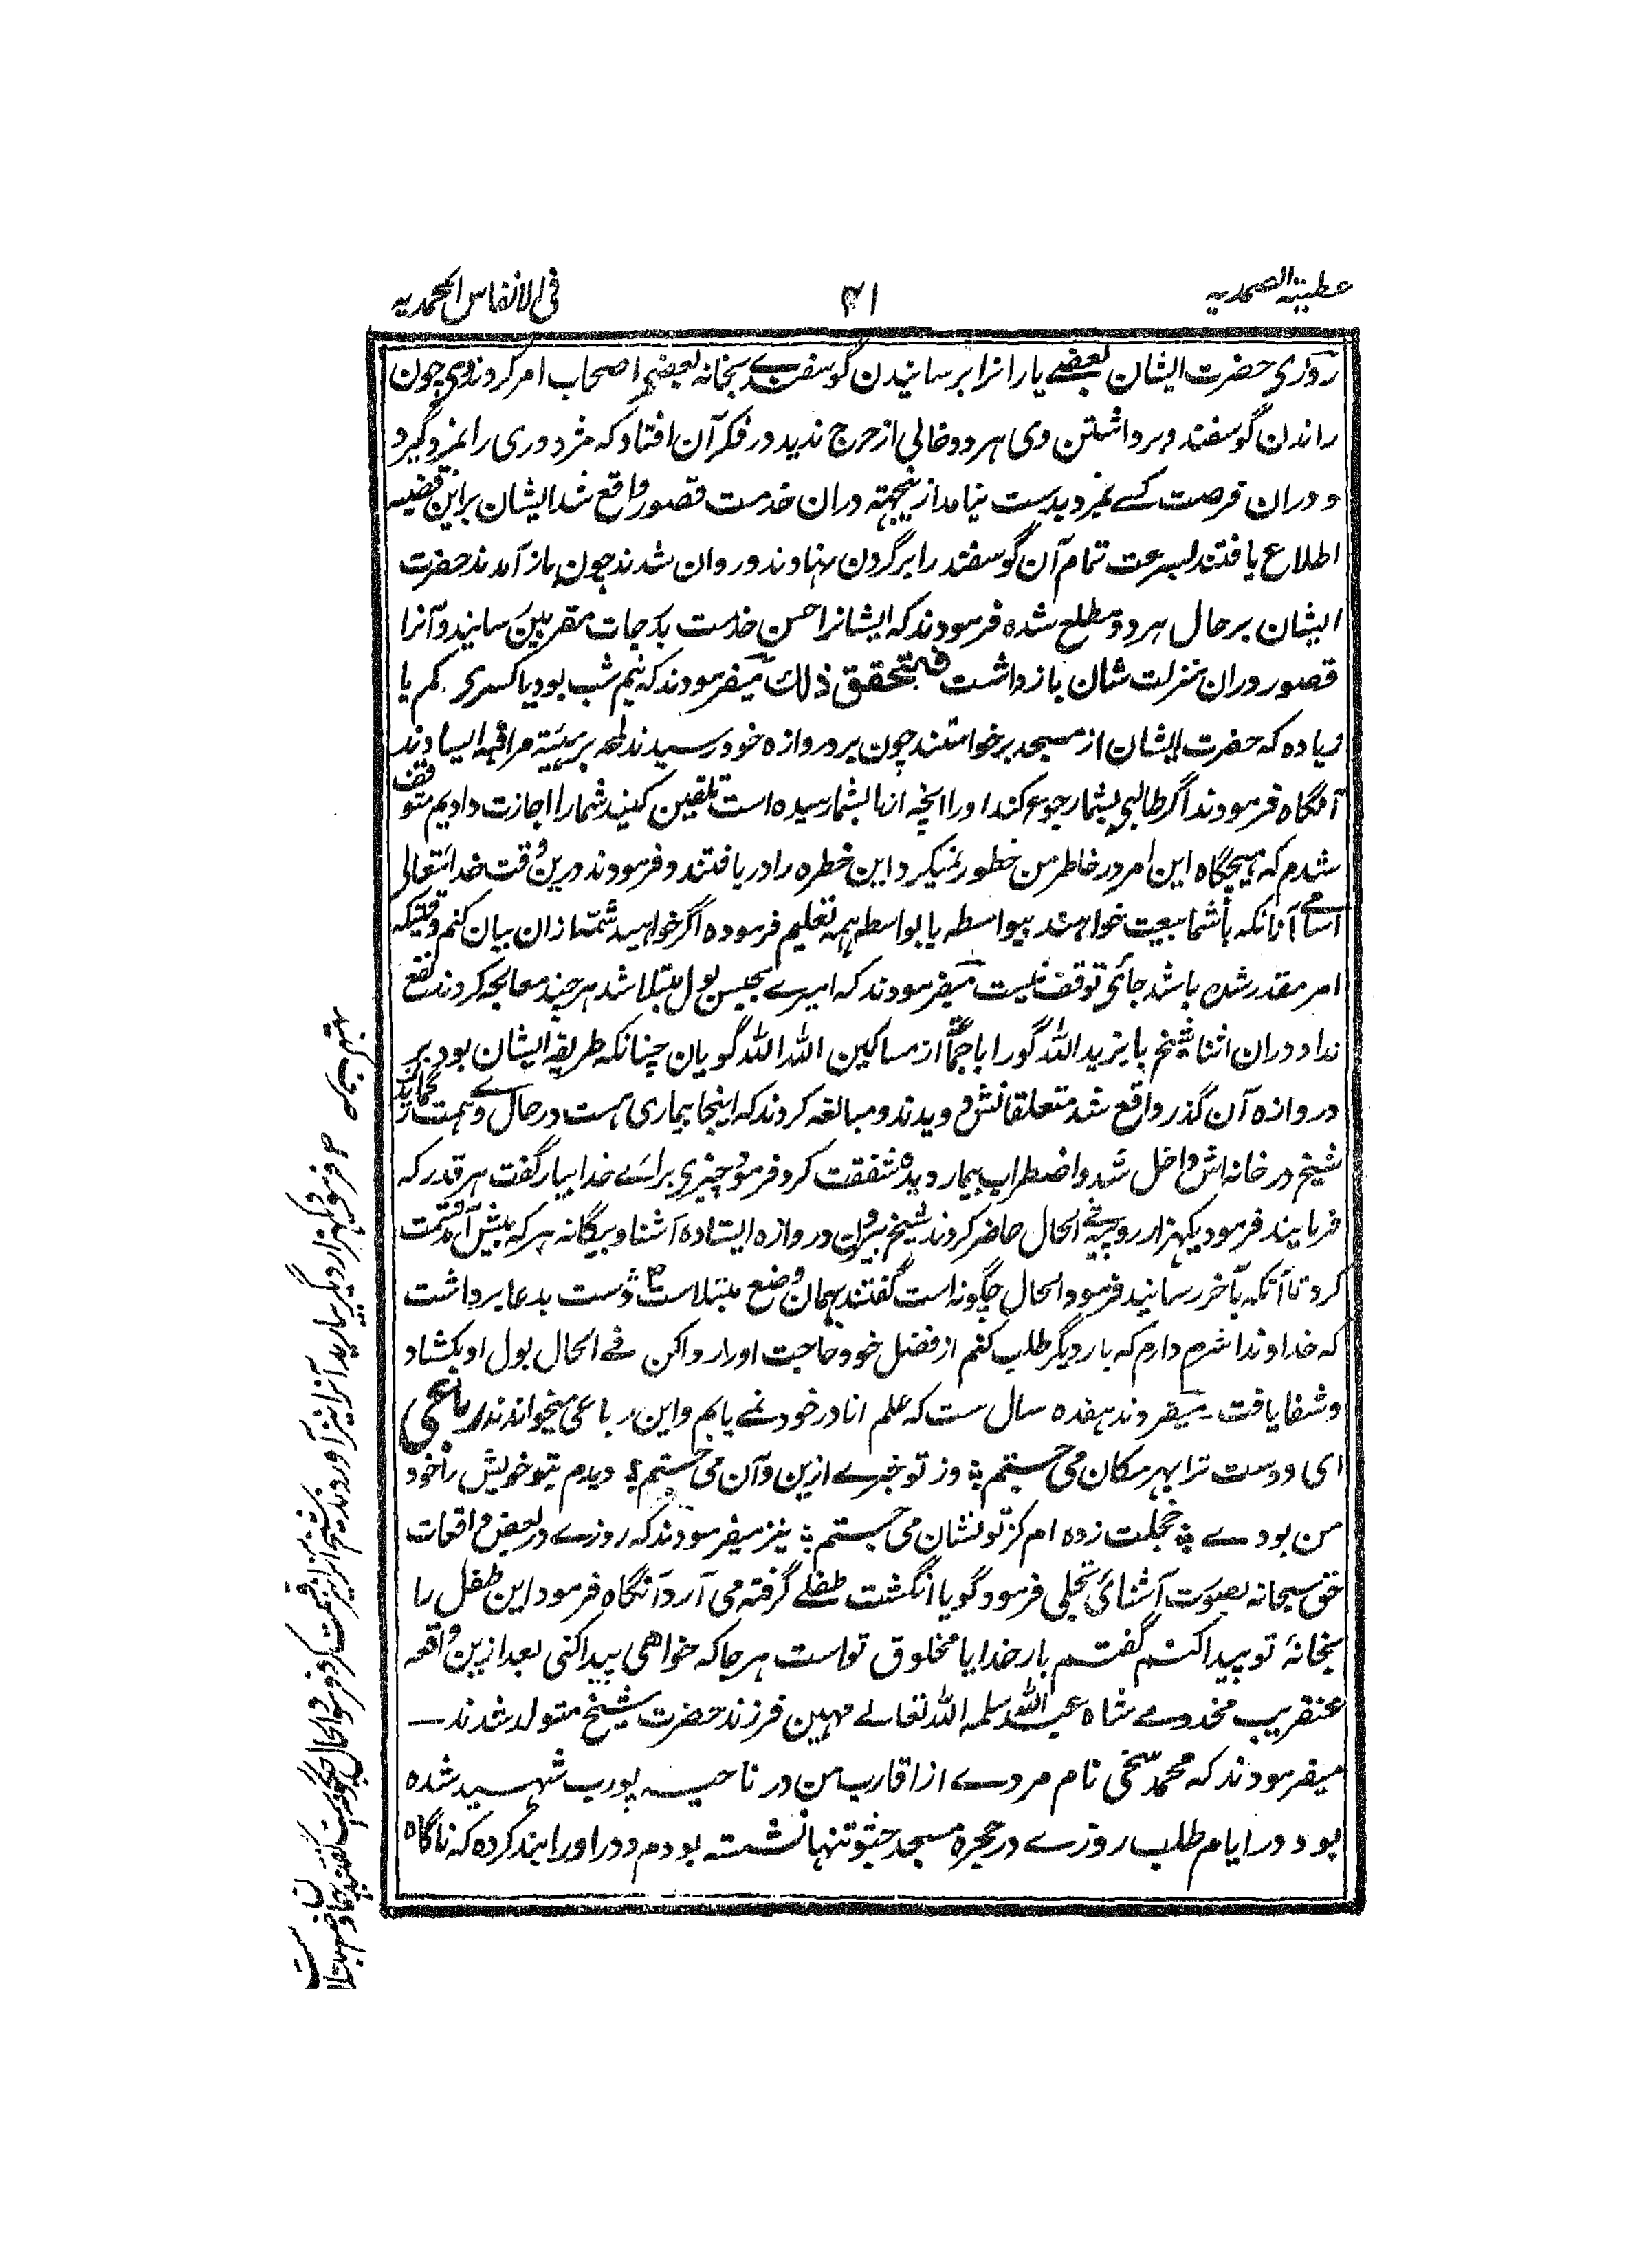 عطیته الصمدیه ۲۱ فی الانفاس المحمدیه
روزی حضرت ایشان بعضے یارانرا برسانیدن گوسفندے بخانه بعضے اصحاب امر کردند وی چون
راندن گوسفند و برداشتن وی هر دو خالی از حرج ندید در فکر آن افتاد که مزدوری را بمزد گیرد
و دران فرصت کسے بمزد بدست نیامد ازینجهته دران خدمت قصور واقع شد ایشان براین قضیه
اطلاع یافتند بسرعت تمام آن گوسفند را برگردن نهادند و روان شدند چون باز آمدند حضرت
ایشان بر حال هر دو مطلع شده فرمودند که ایشانرا حسن خدمت بدرجات مقربین رسانید و آنرا
قصور دران منزلت شان بازداشت فتحقق ذلك میفرمودند که نیم شب بود یا کسری کم یا
زیاده که حضرت ایشان از مسجد برخواستند چون بر دروازه خود رسیدند لمحه برهیئته مراقبه ایستادند
آنگاه فرمودند اگر طالبی بشما رجوع کند او را انچه از ما بشما رسیده است تلقین کنید شما را اجازت دادیم متوقف
شدم که هیچگاه این امر در خاطر من خطور نمیکرد این خطره را دریافتند و فرمودند درین وقت خدائتعالی
اسامے آنانکه باشما بیعت خواهند بیواسطه یا بواسطه همه تعلیم فرموده اگر خواهید شمّهٔ ازان بیان کنم وقتیکه
امر مقدر شده باشد جائی توقف نیست میفرمودند که امیرے بحبس بول مبتلا شد هرچند معالجه کردند نفع
نداد دران اثنا شیخ بایزید الله گو را با جمعے از مساکین الله الله گویان چنانکه طریقه ایشان بود بر
دروازه آن گذر واقع شد متعلقانش دویدند و مبالغه کردند که اینجا بیماری هست در حال وے همت گمارید
شیخ در خانه اش داخل شد و اضطراب بیمار دیده شفقت کرد فرمود چیزی برائے خدا بیار گفت هر قدر که
فرمایند فرمود یکهزار روپیه فی الحال حاضر کردند شیخ بیرون دروازه ایستاده آشنا و بیگانه هر که پیش آمد قسمت
کرد تا آنکه بآخر رسانید فرمود الحال چگونه است گفتند بهمان وضع مبتلاست دست بدعا برداشت
که خداوندا شرم دارم که بار دیگر طلب کنم از فضل خود حاجت او را روا کن فے الحال بول او بکشاد
و شفا یافت - میفرمودند هفده سال ست که علم انا در خود نمے یابم و این رباعی میخواندند رباعی
ای دوست ترا بهر مکان می جستم ؞ وز تو خبرے ازین و آن می جستم ؞ دیدم بتو خویش را خود
من بودے ؞ خجلت زده ام کز تو نشان می جستم ؞ نیز میفرمودند که روزے در بعض واقعات
حق سبحانه بصورت آشنائی تجلی فرمود گویا انگشت طفلے گرفته می آرد آنگاه فرمود این طفل را
بخانهٔ تو پیدا کنم گفتم بار خدایا مخلوق تو است هر جا که خواهی پیدا کنی بعد ازین واقعه
عنقریب مخدومے شاه عبدالله سلمه الله تعالے مهین فرزند حضرت شیخ متولد شدند —
میفرمودند که محمد سخی نام مردے از اقارب من در ناحیه پورب شهید شده
بود در ایام طلب روزے در حجره مسجد جنبو تنها نشسته بودم و در او را بند کرده که ناگاه
فرمود یکهزار دیگر بیارید آنرا نیز آوردند شیخ آنرا نیز قسمت کرد فرمود الحال چگونه است گفتند